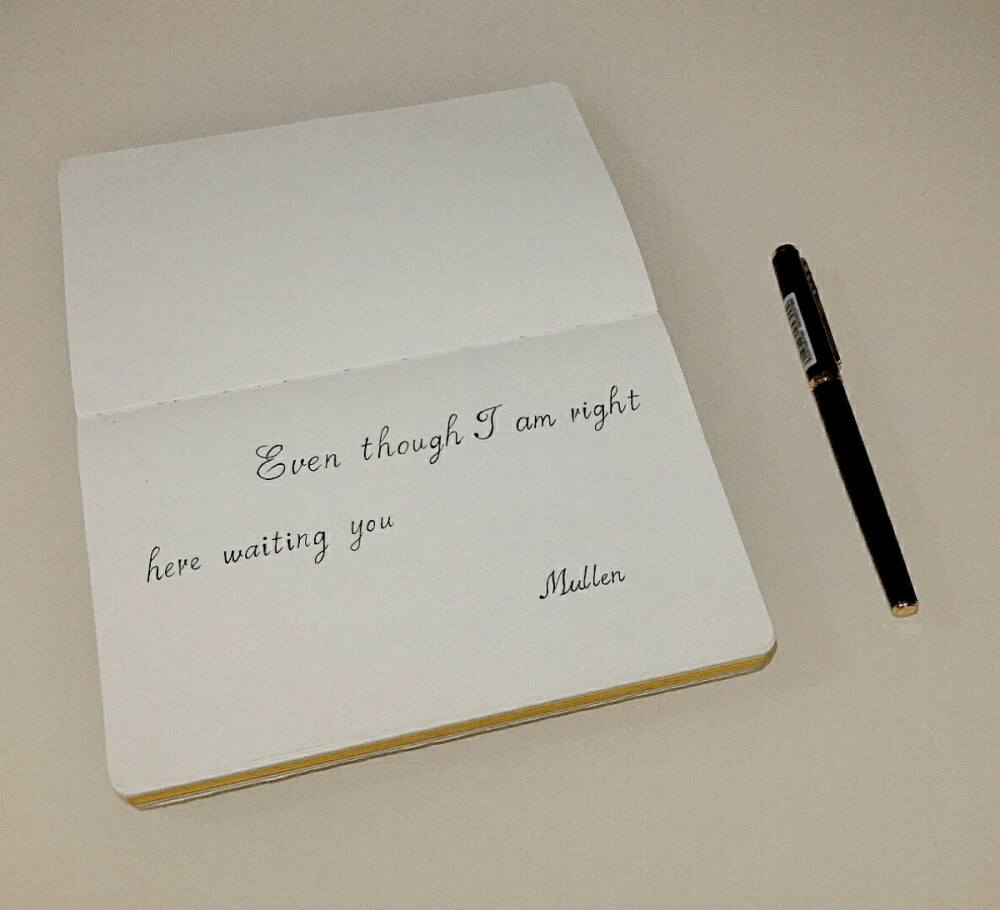 Even though I am right
here waiting you
Mullen